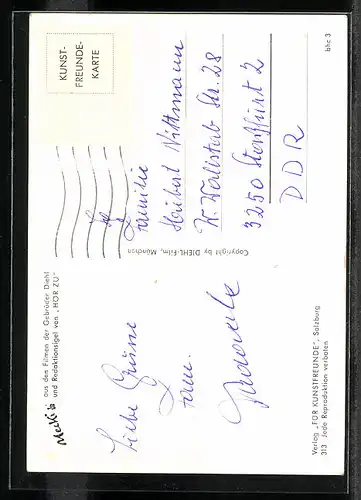 Mecki aus den Filmen der Gebrüder Diehl
und Redaktionsigel von "HÖR ZU"
Liebe Grüsse
Verlag „FÜR KUNSTFREUNDE", Salzburg
313 Jede Reproduktion verboten
Copyright by DIEHL-Film, München
KUNST-
FREUNDE-
KARTE
Familie
Hubert Wittmann
Str. 28
3250 Staßfurt 2
DDR
bhc 3